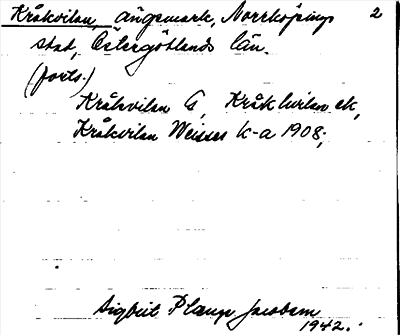 Kråkvilan, ängsmark, Norrköpings 2
stad, Östergötlands län.
(forts.)
Kråkvilan G, Kråkhvilan ek,
Kråkvilan Weisses k-a 1908;
Sigbrit Plange Jacobson
1942.